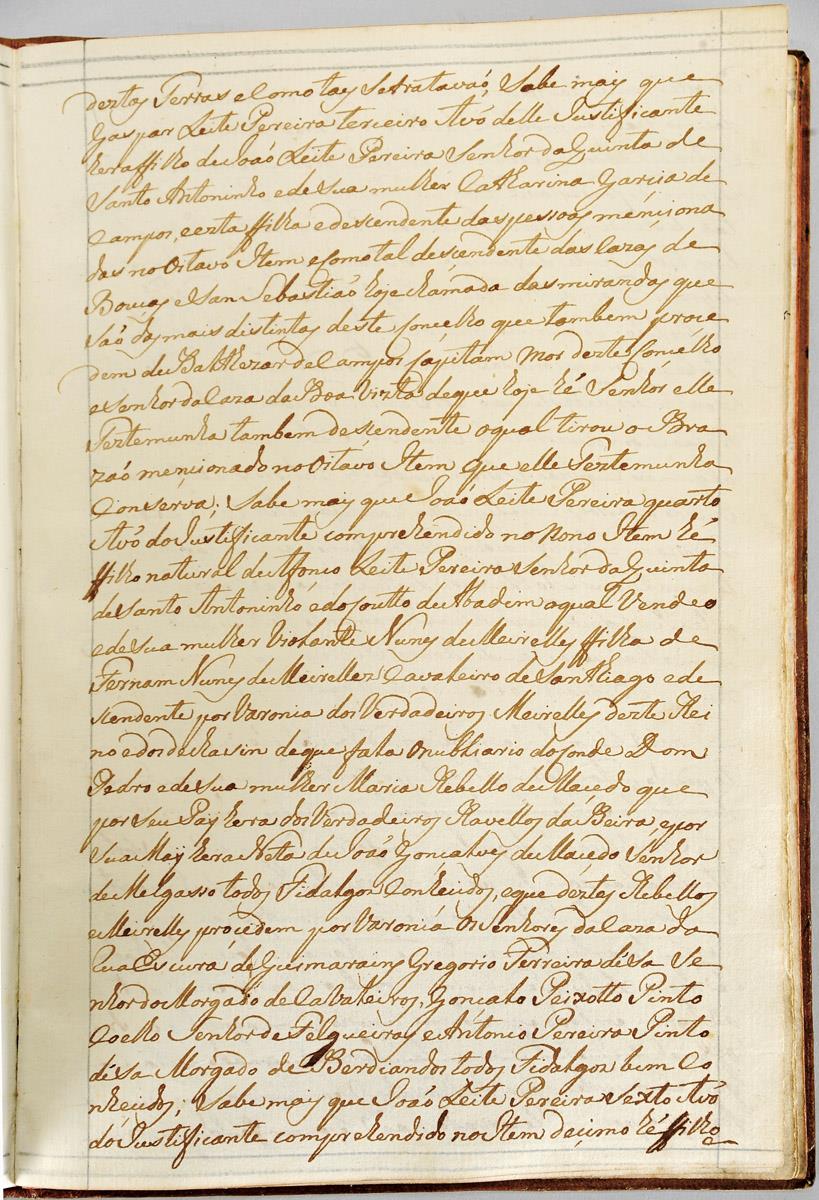 deztas Terras e Como tay Setratavaó, Sabe may que
Gaspar Leite Pereira terceiro Avó delle Justificante
hera ffilho de Joaó Leite Pereira Senhor da Quinta de
Santo Antoninho e de Sua mulher Catharina Garcia de
Campos, e ezta ffilha e descendente das pessoas menciona
das no Oitavo Item e Como tal descendente das Cazas de
Bouças e San Sebastiaó hoje chamada das mirandas que
saó das mais distintas deste Concelho que tambem proce
dem de Balthezar de Campos Capitam Mor dezte Concelho
e Senhor da Caza da Boa Vizta de que hoje hé Senhor elle
Teztemunha tambem descendente o qual tirou o Bra
zaó mencionado no Oitavo Item que elle Teztemunha
Conserva; Sabe may que Joaó Leite Pereira quarto
Avó do Justificante comprehendido no Nono Item hé
ffilho natural de Afonco Leite Pereira Senhor da Quinta
de Santo Antoninho e do Coutto de Abadim o qual Vendeo
e de sua mulher Violante Nunes de Meirelles ffilha de
Fernam Nunes de Meirellez Cavaheiro de San Thiago e de
scendente por Varonia dos Verdadeiros Meirelles dezte Rei
no e dos de hasin de que fala o nubliario do Conde Dom
Pedro e de sua mulher Maria Rebello de Macedo que
por Seu Pay hera dos Verdadeiros Ravellos da Beira, e por
Sua May hera Neta de Joaó Goncalves de Macedo Senhor
de Melgasso todos Fidalgos Conhecidos, e que deztes Rebellos
e Meirelles procedem por Varonia Os senhores da Caza da
Rua Escura de Guimarains Gregorio Ferreira désa Se
nhor do Morgado de Cavaheiros, Goncalo Peixotto Pinto
Coelho Senhor de Felgueiras e António Pereira Pinto
désa Morgado de Berdiandos todos Fidalgos bem Co
nhecidos; Sabe may que Joaó Leite Pereira Sexto Avó
do Justificante comprehendido no Item decimo hé ffilho